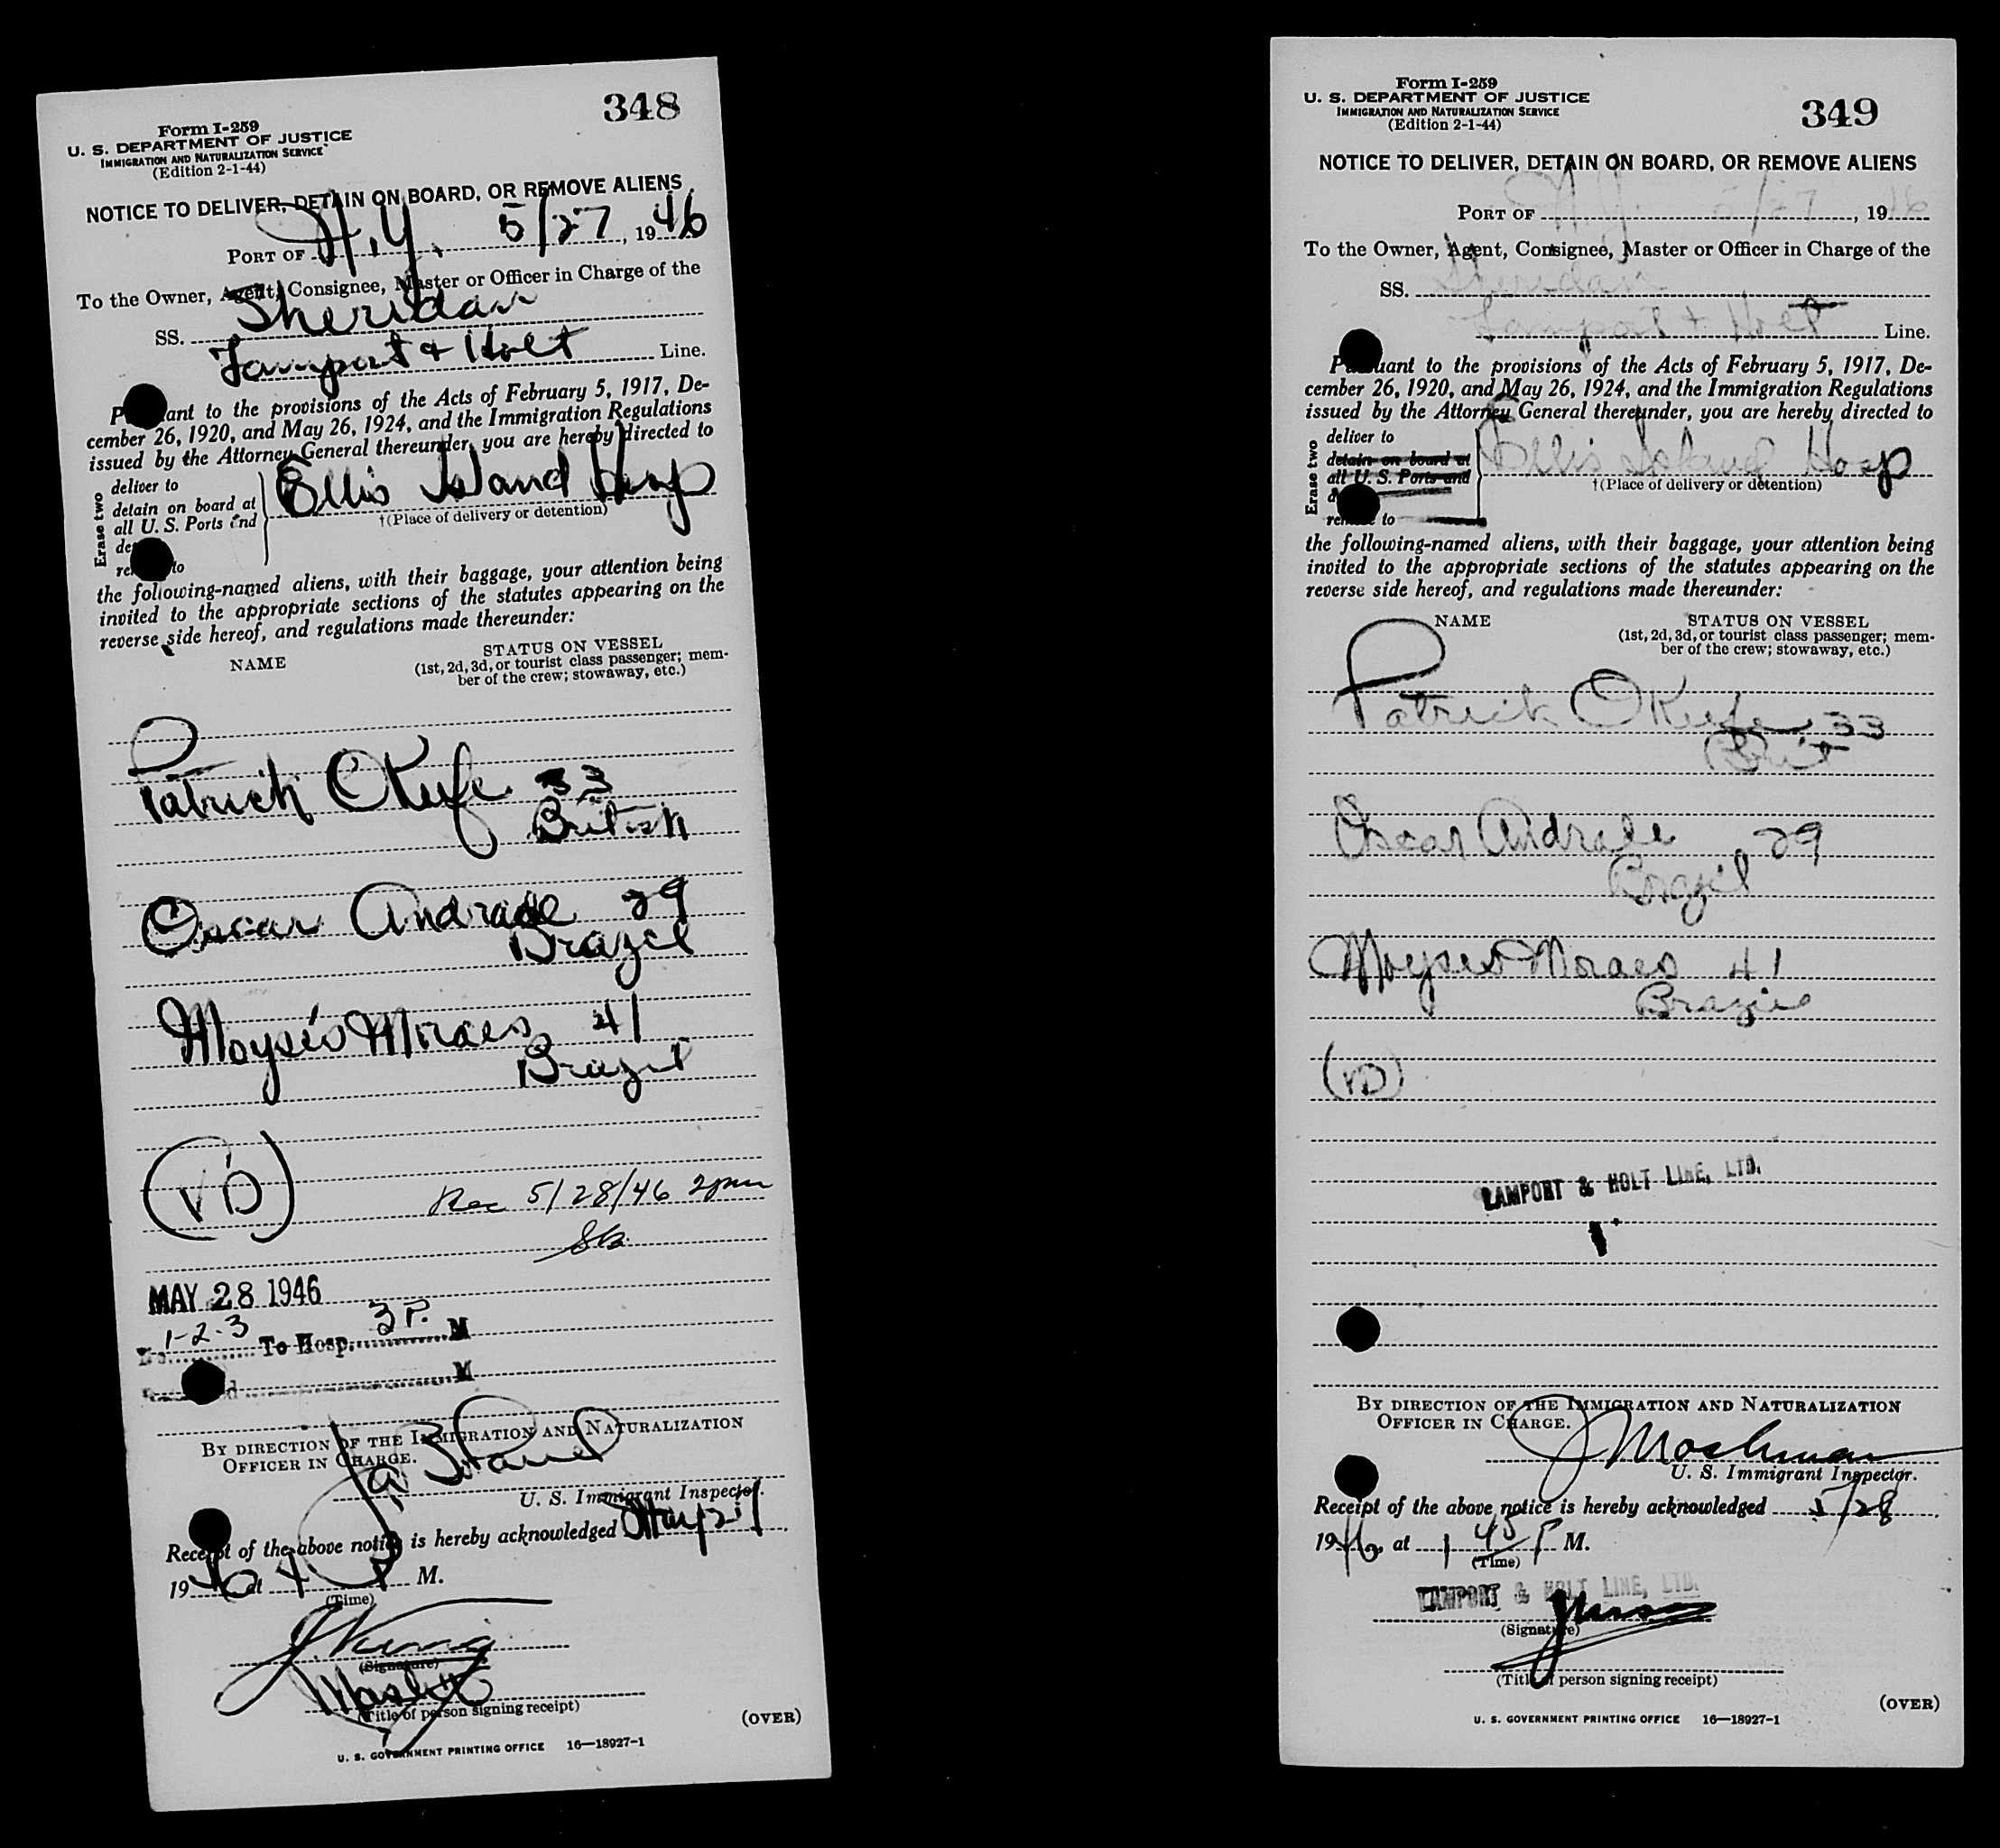 348
Form I-259
U. S. DEPARTMENT OF JUSTICE
IMMIGRATION AND NATURALIZATION SERVICE
(Edition 2-1-44)
NOTICE TO DELIVER, DETAIN ON BOARD, OR REMOVE ALIENS
PORT OF N.Y. 5/27, 1946
To the Owner, Agent, Consignee, Master or Officer in Charge of the
SS. Sheridan
Lamport & Holt Line.
Pursuant to the provisions of the Acts of February 5, 1917, De-
cember 26, 1920, and May 26, 1924, and the Immigration Regulations
issued by the Attorney General thereunder, you are hereby directed to
Erase two
deliver to
detain on board at
all U. S. Ports and
de
remove to
Ellis Island Hosp
†(Place of delivery or detention)
the following-named aliens, with their baggage, your attention being
invited to the appropriate sections of the statutes appearing on the
reverse side hereof, and regulations made thereunder:
NAME STATUS ON VESSEL
(1st, 2d, 3d, or tourist class passenger; mem-
ber of the crew; stowaway, etc.)
Patrick OKeefe 33
British
Oscar Andrade 29
Brazil
Moysés Moraes 41
Brazil
(VD)
Rec 5/28/46 2pm
MAY 28 1946
1-2-3 To Hosp. 3 P. M
M
BY DIRECTION OF THE IMMIGRATION AND NATURALIZATION
OFFICER IN CHARGE.
U. S. Immigrant Inspector.
Receipt of the above notice is hereby acknowledged May 27
1946 at 4 P M.
(Time)
(Signature)
Master
(Title of person signing receipt)
(OVER)
U. S. GOVERNMENT PRINTING OFFICE 16—18927-1
349
Form I-259
U. S. DEPARTMENT OF JUSTICE
IMMIGRATION AND NATURALIZATION SERVICE
(Edition 2-1-44)
NOTICE TO DELIVER, DETAIN ON BOARD, OR REMOVE ALIENS
PORT OF N.Y. 5/27, 1946
To the Owner, Agent, Consignee, Master or Officer in Charge of the
SS. Sheridan
Lamport + Holt Line.
Pursuant to the provisions of the Acts of February 5, 1917, De-
cember 26, 1920, and May 26, 1924, and the Immigration Regulations
issued by the Attorney General thereunder, you are hereby directed to
Erase two
deliver to
detain on board at
all U. S. Ports and
d
remove to
Ellis Island Hosp
†(Place of delivery or detention)
the following-named aliens, with their baggage, your attention being
invited to the appropriate sections of the statutes appearing on the
reverse side hereof, and regulations made thereunder:
NAME STATUS ON VESSEL
(1st, 2d, 3d, or tourist class passenger; mem-
ber of the crew; stowaway, etc.)
Patrick OKeefe 33
Brit
Oscar Andrade 29
Brazil
Moyses Moraes 41
Brazil
(VD)
LAMPORT & HOLT LINE, LTD.
BY DIRECTION OF THE IMMIGRATION AND NATURALIZATION
OFFICER IN CHARGE.
J Moshman
U. S. Immigrant Inspector.
Receipt of the above notice is hereby acknowledged 5/28,
1946, at 1 45 P M.
(Time)
LAMPORT & HOLT LINE, LTD.
(Signature)
(Title of person signing receipt)
(OVER)
U. S. GOVERNMENT PRINTING OFFICE 16—18927-1